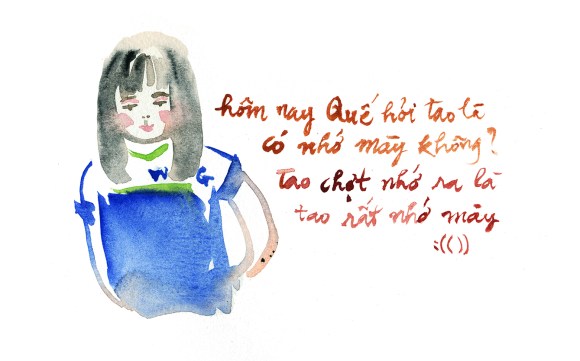 hôm nay Quế hỏi tao là
có nhớ mày không?
Tao chợt nhớ ra là
tao rất nhớ mày
:(( ))
W G